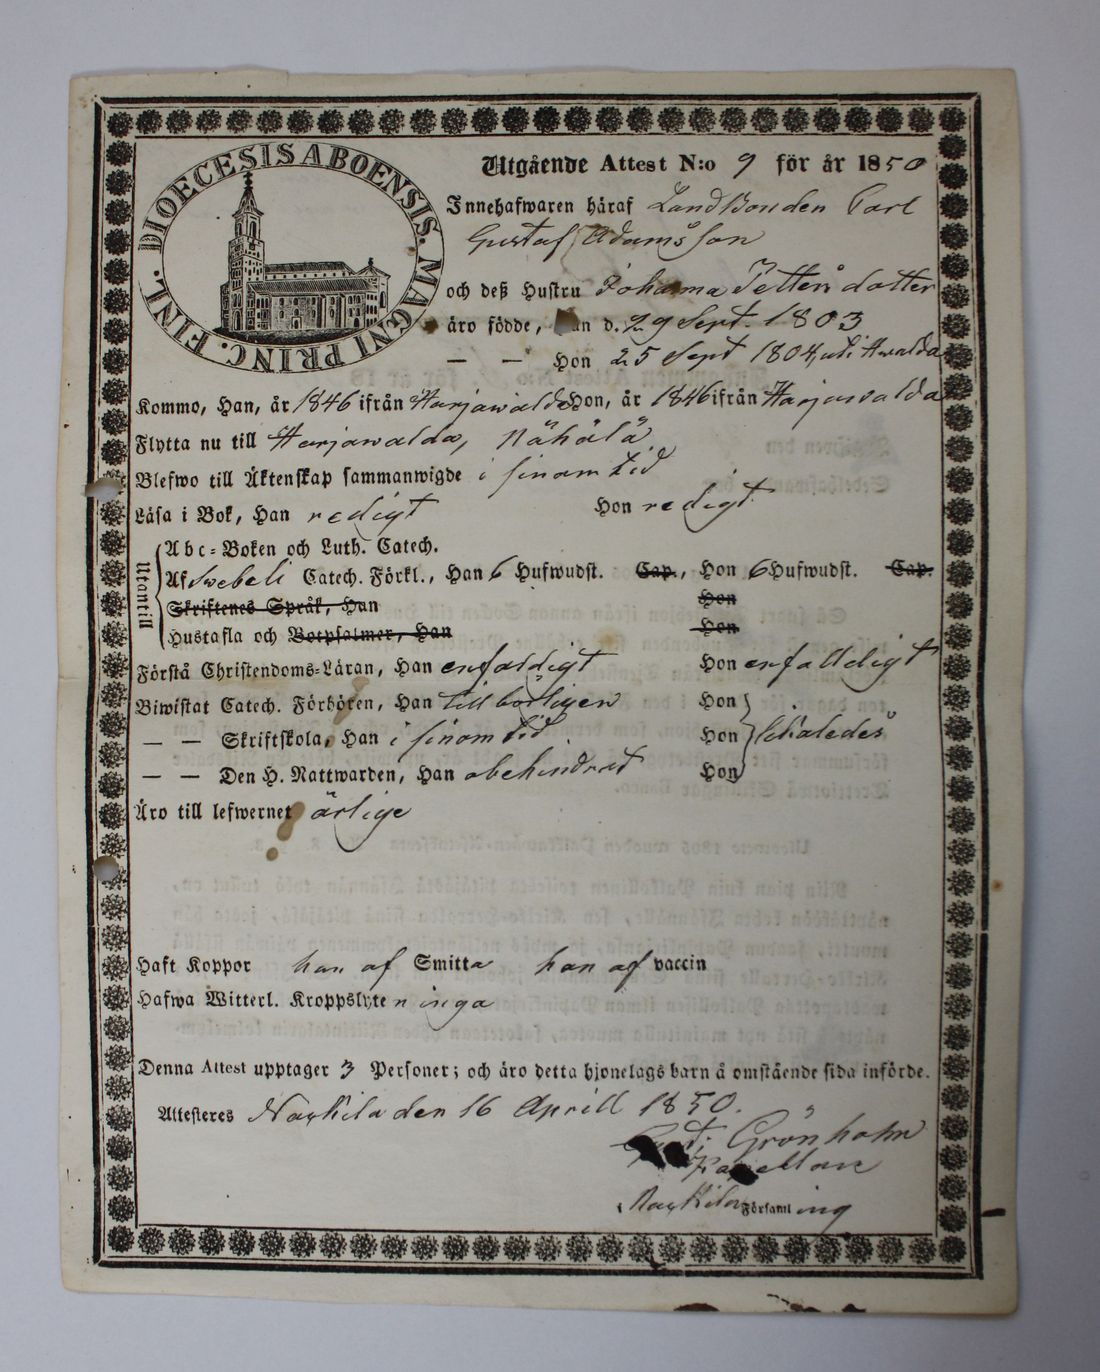 DIOECESIS ABOENSIS. MAGNI PRINC. FINL.
Utgående Attest N:o 9 för år 1850
Innehafwaren häraf Landbonden Carl
Gustaf Adamsson
och deß Hustru Johanna Pettersdotter
äro födde, Han d. 29 Sept. 1803
— — Hon 25 Sept 1804, uti Hwalda
Kommo, Han, år 1846 ifrån Harjawalda Hon, år 1846 ifrån Harjawalda
Flytta nu till Harjawalda, Nähälä
Blefwo till Äktenskap sammanwigde i sinom tid
Läsa i Bok, Han redigt Hon redigt
Utantill
Abc-Boken och Luth. Catech.
Af Swebeli Catech. Förkl., Han 6 Hufwudst. Cap., Hon 6 Hufwudst. Cap.
Skriftenes Språk, Han Hon
Hustafla och Botpsalmer, Han Hon
Förstå Christendoms-Läran, Han enfaldigt Hon enfalldigt
Biwistat Catech. Förhören, Han tillbörligen Hon
— — Skriftskola, Han i sinom tid Hon likaledes
— — Den H. Nattwarden, Han obehindrat Hon
Äro till lefwernet ärlige
Haft Koppor han af Smitta hon af vaccin
Hafwa Witterl. Kroppslyten inga
Denna Attest upptager 3 Personer; och äro detta hjonelags barn å omstående sida införde.
Attesteres Nakkila den 16 Aprill 1850.
Grönholm
Capellan
Nakkila Församling